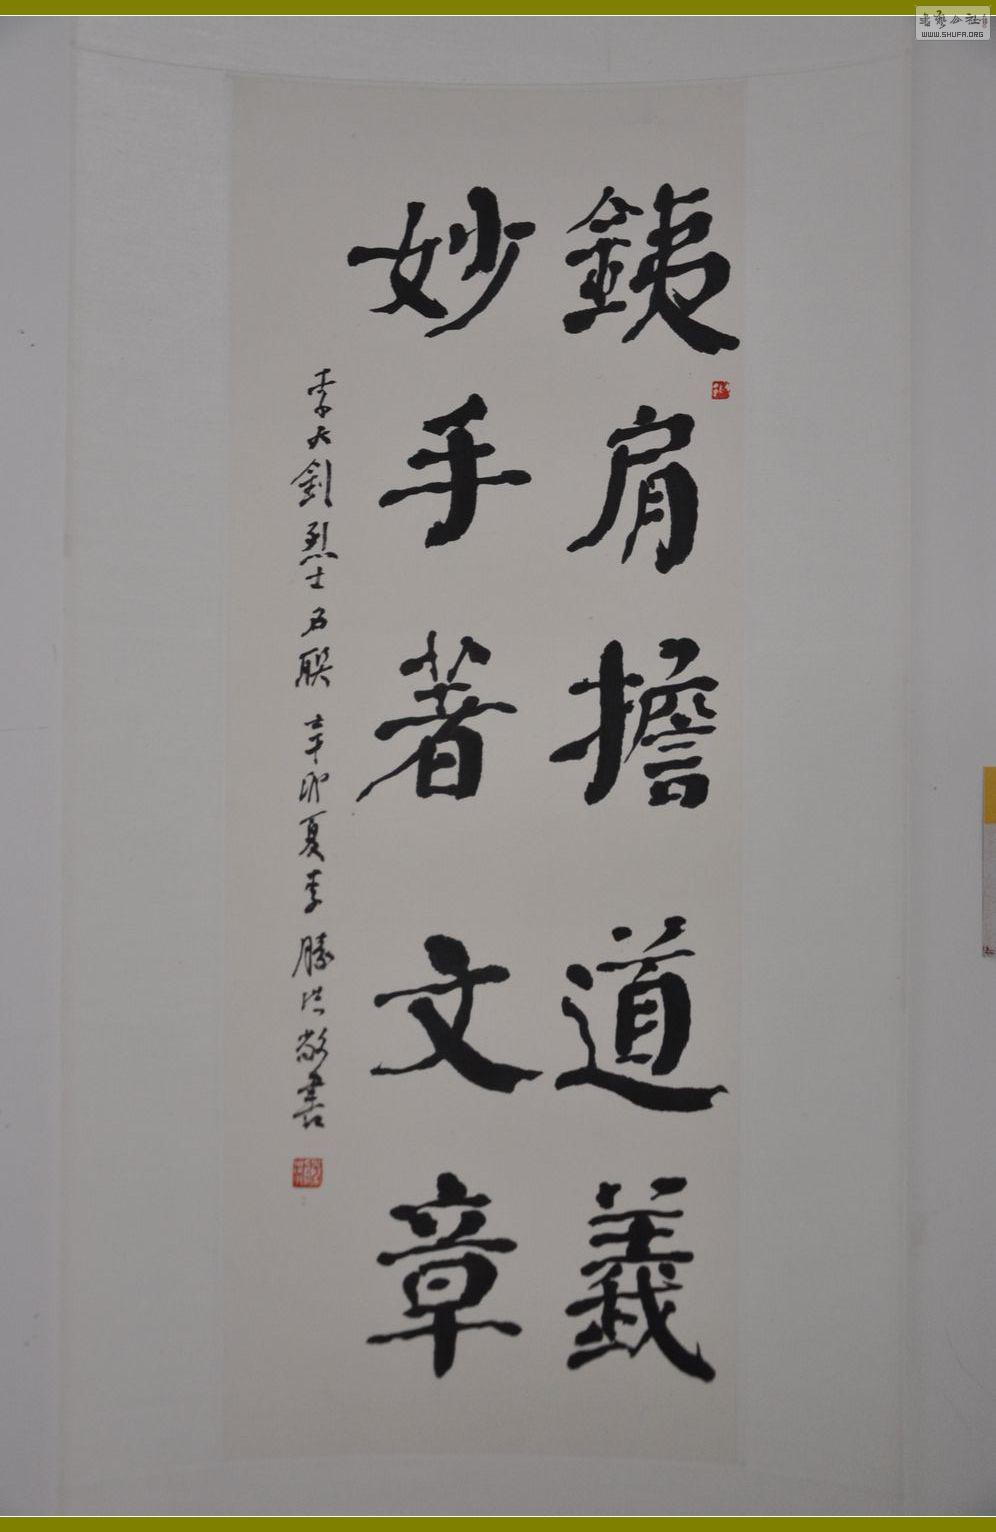 銕肩擔道義
妙手著文章
李大釗烈士名联 辛卯夏李勝洪敬書
書藝公社
WWW.SHUFA.ORG